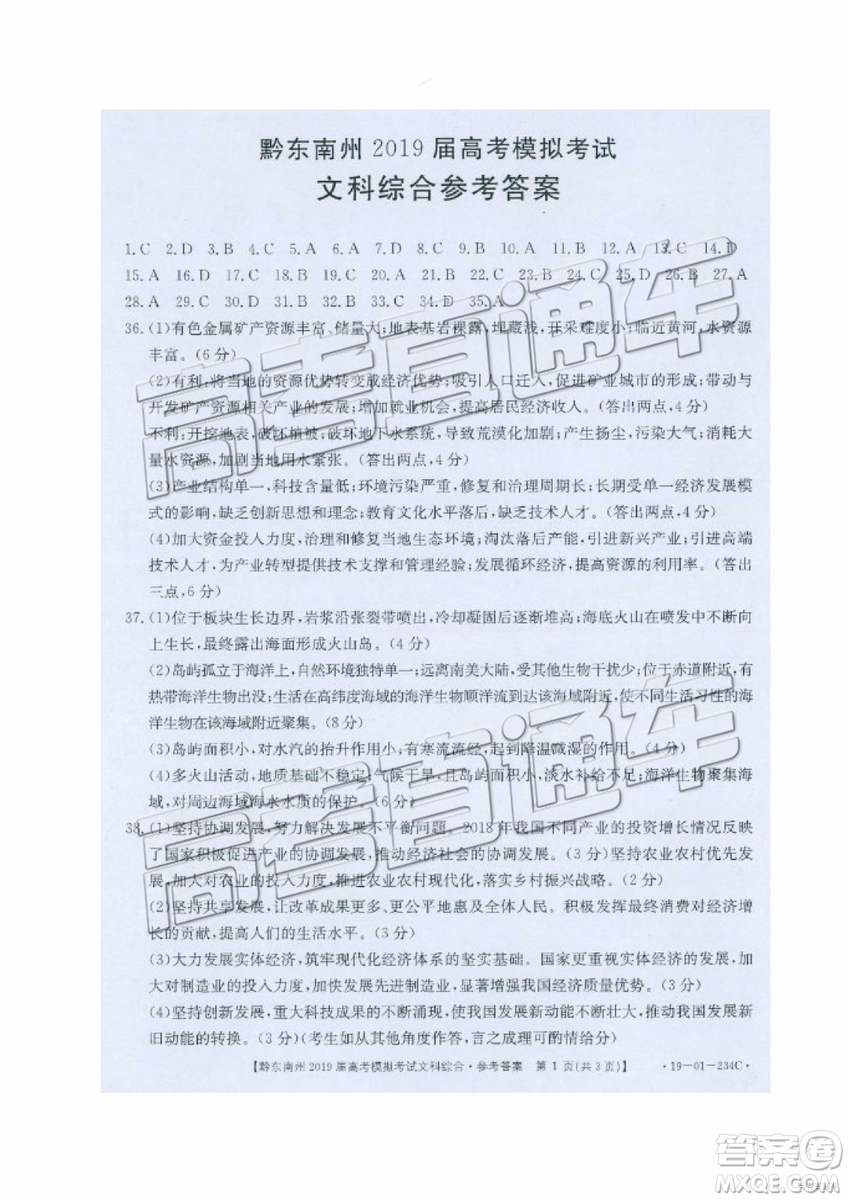 黔东南州 2019 届高考模拟考试
文科综合参考答案
1.C 2.D 3.B 4.C 5.A 6.D 7.D 8.C 9.B 10.A 11.B 12.A 13.C 14.D
15.A 16.D 17.C 18.C 20.A 21.D 22.B 23.B 24.C 25.D 26.B 27.A
28.A 29.C 30.D 31.A 32.B 33.C 34.D 35.A
36.(1)有色金属矿产资源丰富、储量大;地表基岩裸露,埋藏浅,开采难度小;临近黄河,水资源
丰富。(6 分)
(2)有利:将当地的资源优势转变成经济优势;吸引人口迁入,促进矿业城市的形成;带动与
开发矿产资源相关产业的发展;增加就业机会,提高居民经济收入。(答出两点,4 分)
不利:开挖地表,破坏植被;破坏地下水系统,导致荒漠化加剧;产生扬尘,污染大气;消耗大
量水资源,加剧当地用水紧张。(答出两点,4 分)
(3)产业结构单一,科技含量低;环境污染严重,修复和治理周期长;长期受单一经济发展模
式的影响,缺乏创新思想和理念;教育文化水平落后,缺乏技术人才。(答出两点,4 分)
(4)加大资金投入力度,治理和修复当地生态环境;淘汰落后产能,引进新兴产业;引进高端
技术人才,为产业转型提供技术支撑和管理经验;发展循环经济,提高资源利用率。(答出
三点,6 分)
37.(1)位于板块生长边界,岩浆沿张裂带喷出,冷却凝固后逐渐堆高;海底火山在喷发中不断向
上生长,最终露出海面形成火山岛。(4 分)
(2)岛屿孤立于海洋上,自然环境独特单一;远离南美大陆,受人类干扰少;位于赤道附近,有
热带海洋生物出没;生活在高纬度海域的海洋生物顺洋流到达该海域,不同生活习性的海
洋生物在该海域附近聚集。(8 分)
(3)岛屿面积小,对水汽的抬升作用小;有寒流流经,起到降温减湿的作用。(4 分)
(4)多火山活动,地质基础不稳定;气候干旱,且岛屿面积小,淡水补给不足;海洋生物聚集海
域,对周边海域海水水质的保护。(6 分)
38.(1)坚持协调发展,努力解决发展不平衡问题。2018 年我国不同产业的投资增长情况反映
了国家积极促进产业的协调发展,推动经济社会的协调发展。(3 分)坚持农业农村优先发
展,加大对农业的投入力度,推进农业农村现代化,落实乡村振兴战略。(2 分)
(2)坚持共享发展,让改革成果更多、更公平地惠及全体人民。积极发挥社会领域投资增长
的贡献,提高人们的生活水平。(3 分)
(3)大力发展实体经济,筑牢现代化经济体系的坚实基础。国家更重视实体经济的发展,加
大对制造业的投入力度,积极发展先进制造业,显著增强我国经济质量优势。(3 分)
(4)坚持创新发展,重大科技成果的不断涌现,使我国的发展新动能不断壮大,推动我国发展新
旧动能的转换。(3 分)(考生如从其他角度作答,言之成理可酌情给分)
【黔东南州 2019 届高考模拟考试文科综合·参考答案 第 1 页(共 3 页)】 ·19-01-234C·
高考直通车
高考直通车
答案圈
MXQE.COM